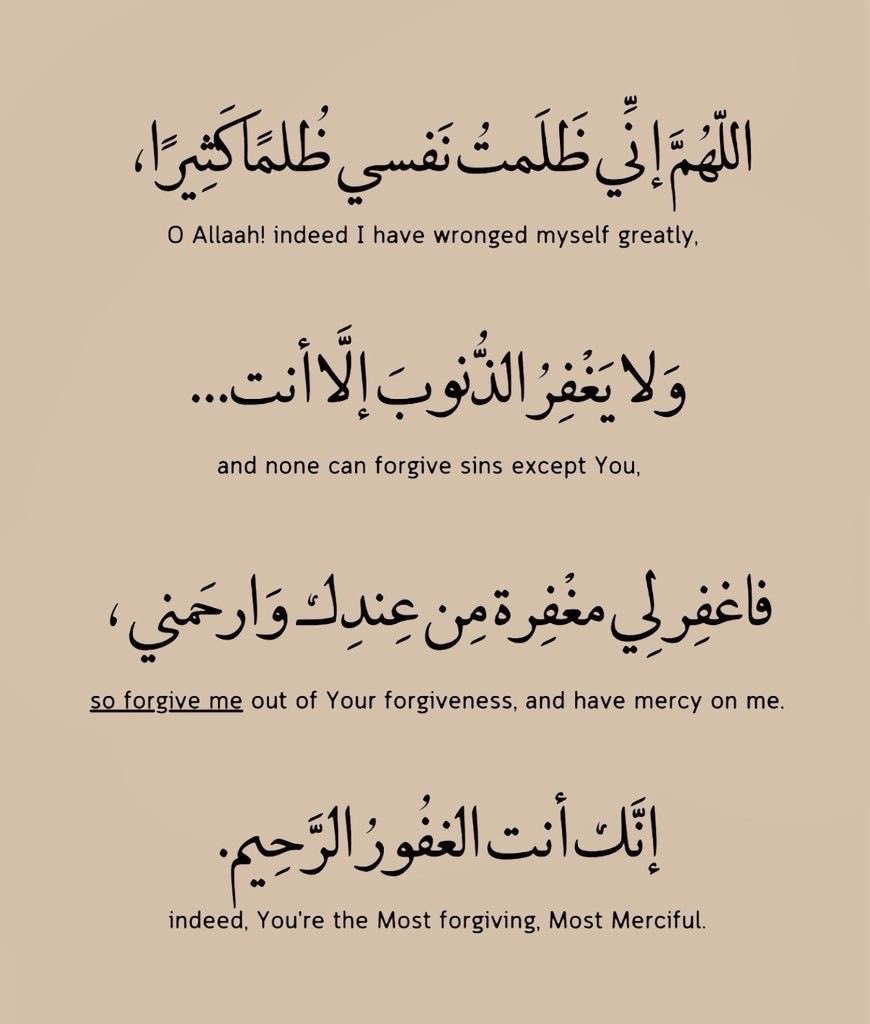 اللّهُمَّ إنِّي ظَلَمتُ نَفسي ظُلمًا كَثِيرًا،
O Allaah! indeed I have wronged myself greatly,
وَلا يَغْفِرُ الذُّنوبَ إلَّا أنت...
and none can forgive sins except You,
فاغفِر لِي مغْفِرة مِن عِندِك وَارحَمني،
so forgive me out of Your forgiveness, and have mercy on me.
إنَّك أنت الغفُورُ الرَّحِيم.
indeed, You're the Most forgiving, Most Merciful.